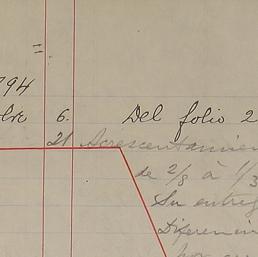 794
bre 6. Del folio 2
21 Acrescentamien
de 2/8 à 1/3
Su entreg
Diferenin
por